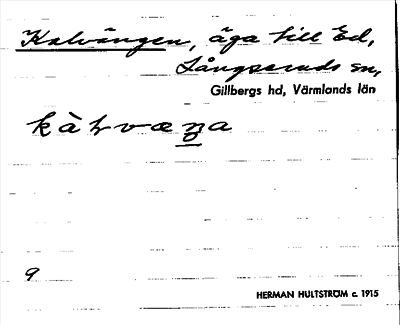 Kalvängen, äga till Ed,
Långseruds sn,
Gillbergs hd, Värmlands län
kàⱶvæŋa
9
HERMAN HULTSTRÖM c. 1915